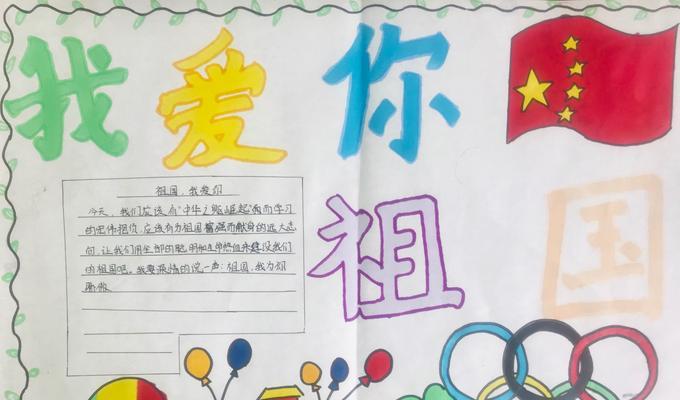 我爱你
祖国
祖国，我爱你
今天，我们应该为“中华之崛起”而学习
的宏伟抱负，应该有为祖国富强而献身的远大志
向，让我们用全部的聪明和热血来建设我们
的祖国吧。我要深情的说一声：祖国，我为你
骄傲